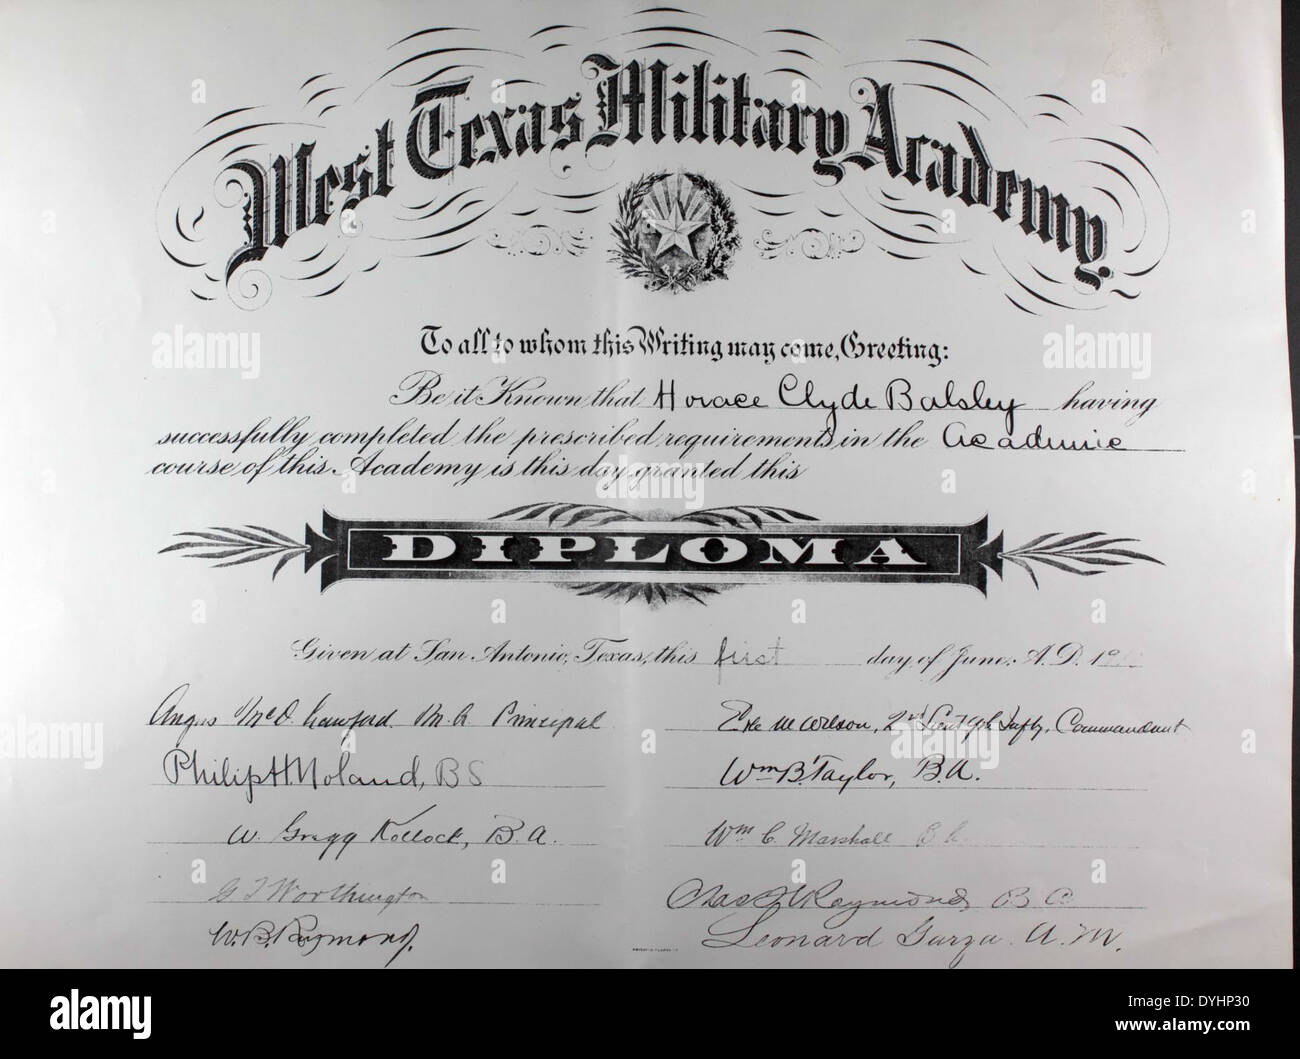 West Texas Military Academy.
To all to whom this Writing may come, Greeting:
Be it Known that Horace Clyde Balsley having
successfully completed the prescribed requirements in the Academic
course of this Academy is this day granted this
DIPLOMA
Given at San Antonio, Texas, this first day of June. A.D. 19
Angus McD. Crawford. M.A. Principal
Philip H. Noland, BS
W. Gregg Kollock, B.A.
G T Worthington
W.B. Raymond.
2nd Lieut Commandant
Wm B. Taylor, B.A.
Wm C. Marshall B A
Chas Raymond,
Leonard Garza. A.M.
alamy
alamy
alamy
alamy
alamy
Image ID: DYHP30
www.alamy.com